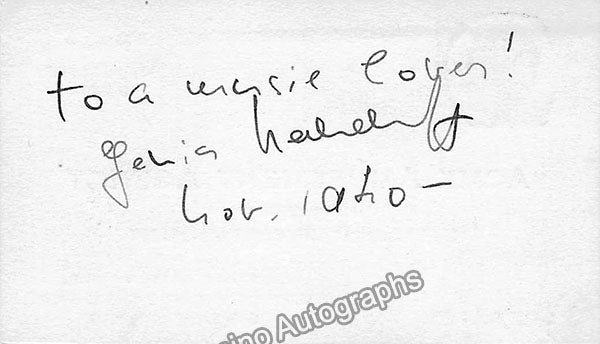 to a music lover!
Genia Nemenoff
Nov. 1940 –
ino Autographs